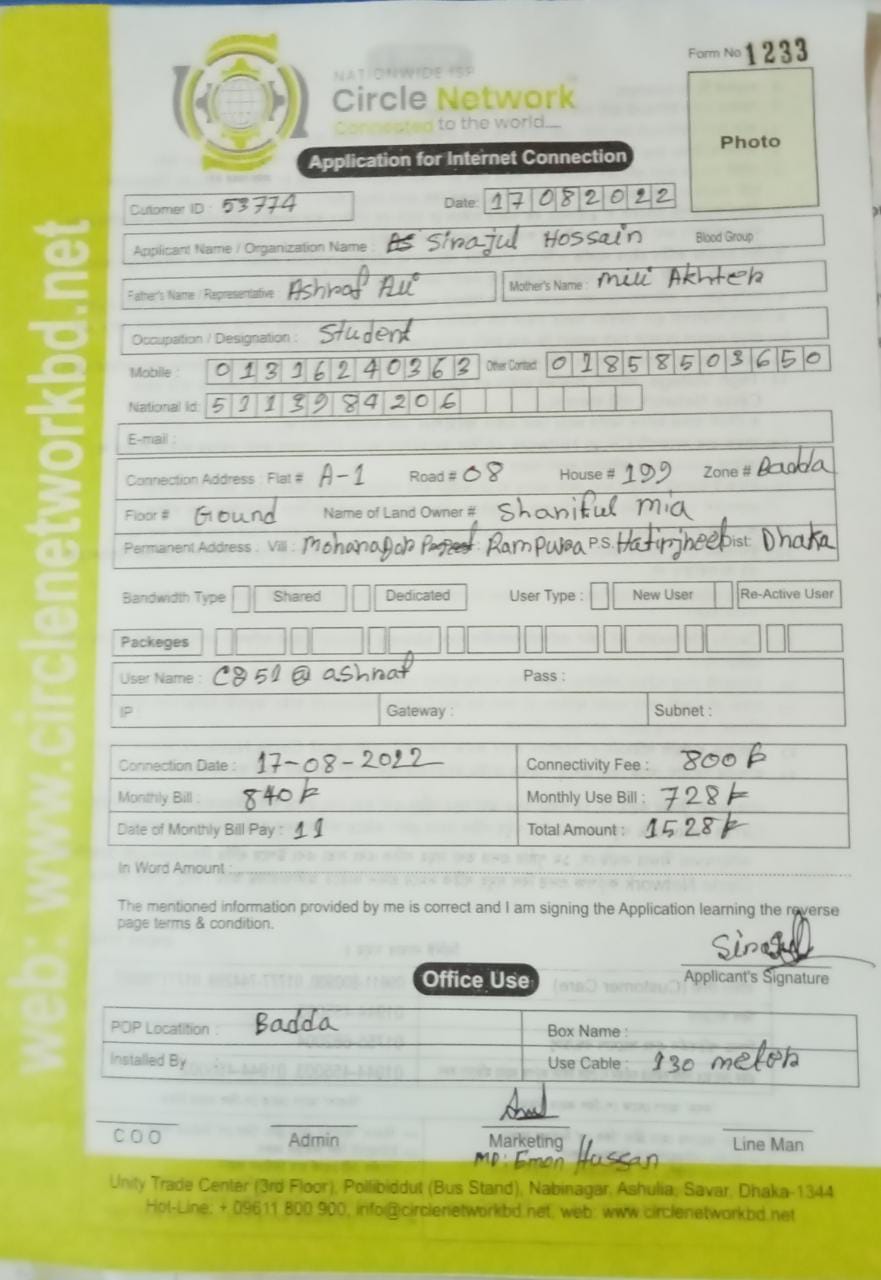 Form No 1233
NATIONWIDE ISP
Circle Network
Connected to the world....
Photo
Application for Internet Connection
Cutomer ID : 53774 Date: 17082022
Applicant Name / Organization Name : Sirajul Hossain Blood Group
Father's Name / Representative Ashraf Ali Mother's Name : Mili Akhter
Occupation / Designation : Student
Mobile : 01316240363 Other Contact: 01858503650
National Id: 5113984206
E-mail :
Connection Address : Flat # A-1 Road # 08 House # 199 Zone # Badda
Floor # Gound Name of Land Owner # Shariful mia
Permanent Address : Vill : Mohanagor : Rampura P.S. Hatirjheel Dist: Dhaka
Bandwidth Type Shared Dedicated User Type : New User Re-Active User
Packeges
User Name : C851@ashraf Pass :
IP Gateway : Subnet :
Connection Date : 17-08-2022 Connectivity Fee : 800৳
Monthly Bill : 840৳ Monthly Use Bill : 728৳
Date of Monthly Bill Pay : 11 Total Amount : 1528৳
In Word Amount :
The mentioned information provided by me is correct and I am signing the Application learning the reverse
page terms & condition.
Sirajul
Applicant's Signature
Office Use
POP Locatition : Badda Box Name :
Installed By Use Cable : 130 meter
COO Admin Marketing Line Man
MD: Emon Hussan
Unity Trade Center (3rd Floor), Pollibiddut (Bus Stand), Nabinagar, Ashulia, Savar, Dhaka-1344
Hot-Line: + 09611 800 900, info@circlenetworkbd.net, web: www.circlenetworkbd.net
web: www.circlenetworkbd.net